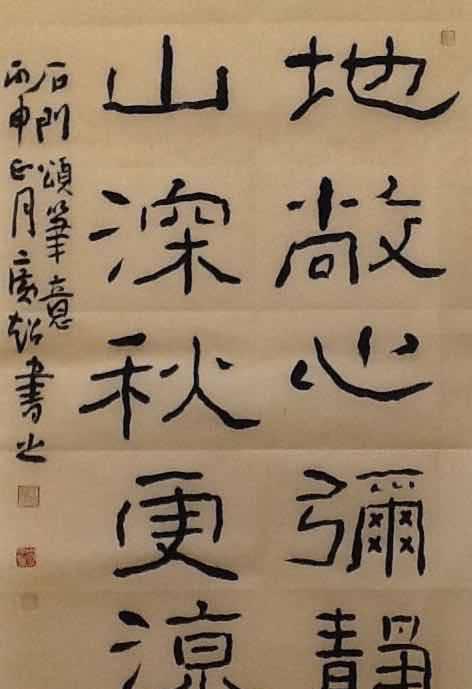 地敞心彌靜
山深秋更涼
石門頌筆意
丙申正月廣超書之